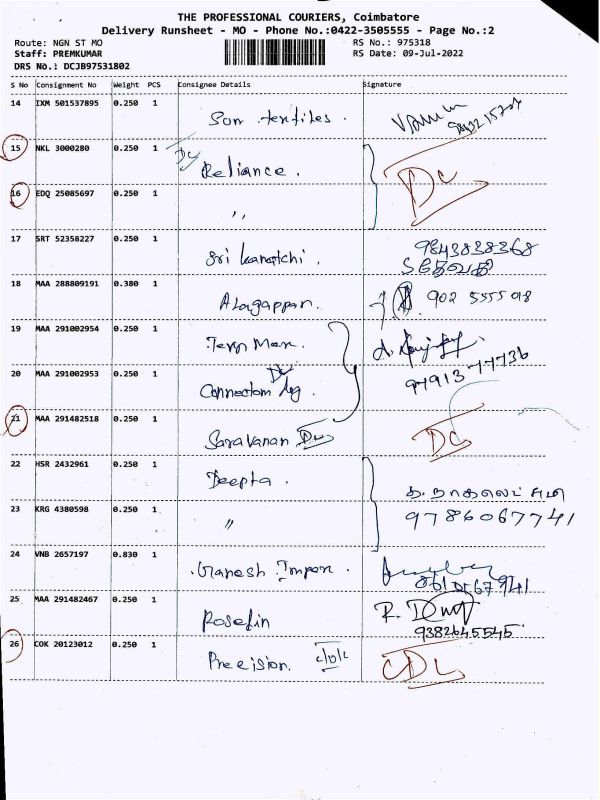 THE PROFESSIONAL COURIERS, Coimbatore
Delivery Runsheet - MO - Phone No.:0422-3505555 - Page No.:2
Route: NGN ST MO RS No.: 975318
Staff: PREMKUMAR RS Date: 09-Jul-2022
DRS No.: DCJB97531802
S No Consignment No Weight PCS Consignee Details Signature
14 IXM 501537895 0.250 1 Son textiles.
15 NKL 3000280 0.250 1 DC Reliance. DC
16 EDQ 25085697 0.250 1 "
17 SRT 52358227 0.250 1 Sri Kamatchi. 9843838368
18 MAA 288809191 0.380 1 Alagappan. 902 5555 018
19 MAA 291002954 0.250 1
20 MAA 291002953 0.250 1 DC 9791377736
21 MAA 291482518 0.250 1 Saravanan DC DC
22 HSR 2432961 0.250 1 Deepta.
23 KRG 4380598 0.250 1 " 9786067741
24 VNB 2657197 0.830 1 Ganesh Impex.
25 MAA 291482467 0.250 1 Rosefin R.
9382645545
26 COK 20123012 0.250 1 Precision.